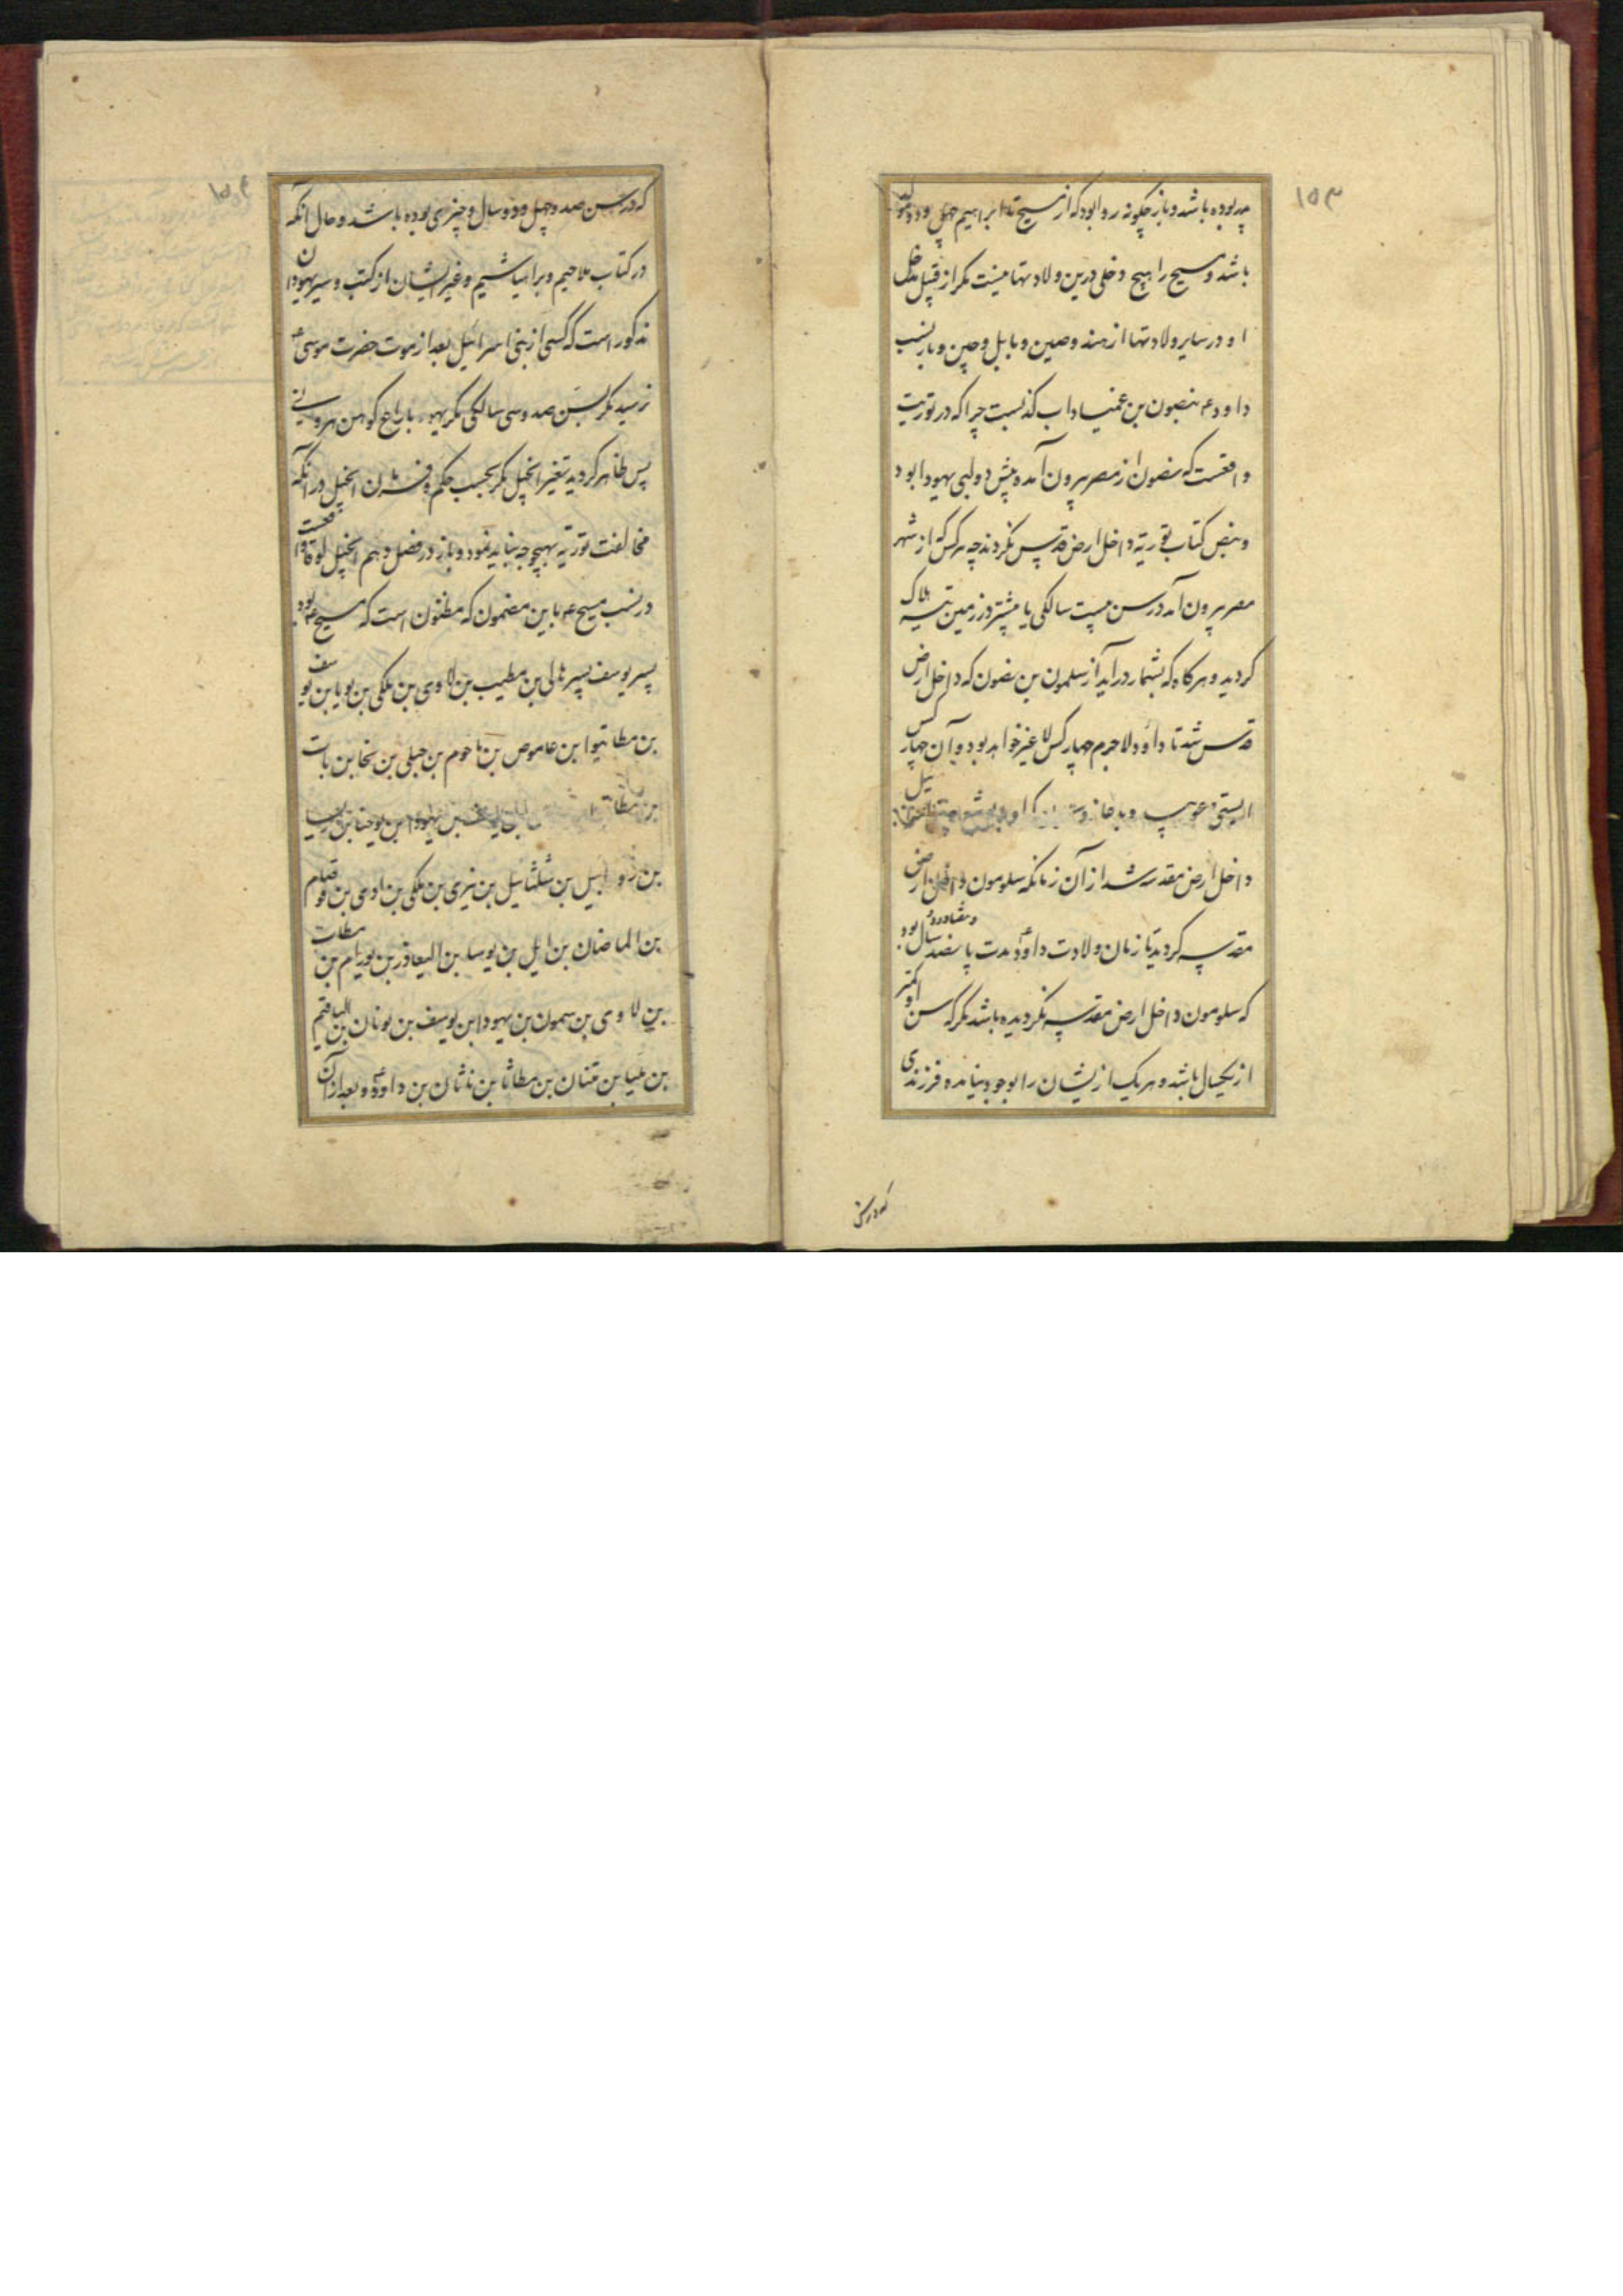 ۱۵۳
پدر بوده باشد و باز چگونه روا بود که از مسیح تا ابراهیم چهل و دو مولد
باشد و مسیح را هیچ دخلی درین ولادتها نیست مگر از قبیل مدخل
او در سایر ولادتها از هند و صین و بابل و چین و باز نسب
داود ع بنصون بن عمیناداب کذبست چرا که در توریت
واقعست که نصون از مصر بیرون آمد و پیش دو لبی یهودا بود
و بنص کتاب توریة داخل ارض قدس نکردند چه هر کس که از شهر
مصر بیرون آمد در سن بیست سالگی یا بیشتر در زمین تیه هلاک
کردید و هرکاه که بشمار درآید از سلمون بن نصون که داخل ارض
قدس شد تا داود لاجرم چهار کس لا غیر خواهد بود و آن چهار کس
داخل ارض مقدسه شد از آن زمانکه سلومون داخل ارض
مقدسه کردید تا زمان ولادت داود ع مدت پانصد و هفتاد و دو سال بود
که سلومون داخل ارض مقدسه نکردیده باشد مکر که سن او کمتر
از یکسال باشد و هر یک ازیشان را بوجود نیامده فرزندی
که در سن
۱۵۴
که در سن صد و چهل و دو سال و چیزی بوده باشد و حال آنکه
در کتاب ملاحیم و براهیاشیم و غیر ایشان از کتب و سیر یهودان
مذکور است که کسی از بنی اسرائیل بعد از موت حضرت موسی ع
نرسید مکر بسن صد و سی سالکی مکر یهو باراع کوهن هرونی
پس ظاهر کردید تغییر انجیل مکر بحسب حکم و فرمان انجیل در آنکه
مخالفت توریة بهیچوجه نباید نمود و باز در فصل دهم انجیل لوقا واقعست
در نسب مسیح ع باین مضمون که مظنون است که مسیح ع بود
پسر یوسف پسر هالی بن مطیب بن لاوی بن ملکی بن یویا بن یوسف
بن مطاتیوا بن عاموص بن ناحوم بن حبلی بن نخا بن بات
بن مطات بن یهودا بن یوحنا بن
بن زوابیل بن شلثائیل بن نیری بن ملکی بن ادی بن قوقیام
بن الماضان بن ایل بن یوسا بن الیعاذر بن یورام بن مطات
بن لاوی بن سمون بن یهودا بن یوسف بن یونان بن الیاقیم
بن ملیا بن متنان بن مطاثا بن ناثان بن داود ع و بعد از آن